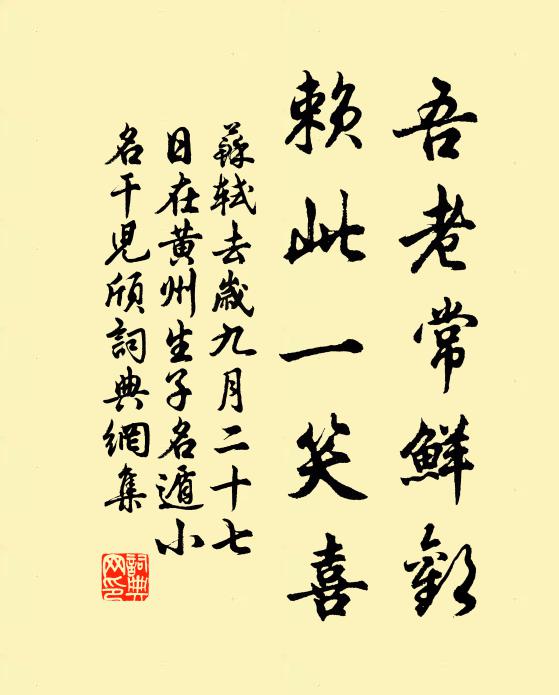 吾老常鮮歡
賴此一笑喜
蘇軾去歲九月二十七
日在黃州生子名遁小
名干兒頎詞典網集
詞典
网印